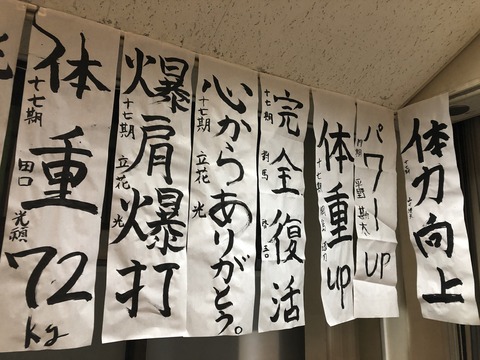 体重72kg
十七期 田口
爆肩爆打
十七期 立花 光
心からありがとう。
十七期 立花 光
完全復活
十七期
体重up
十七期
パワーup
体力向上